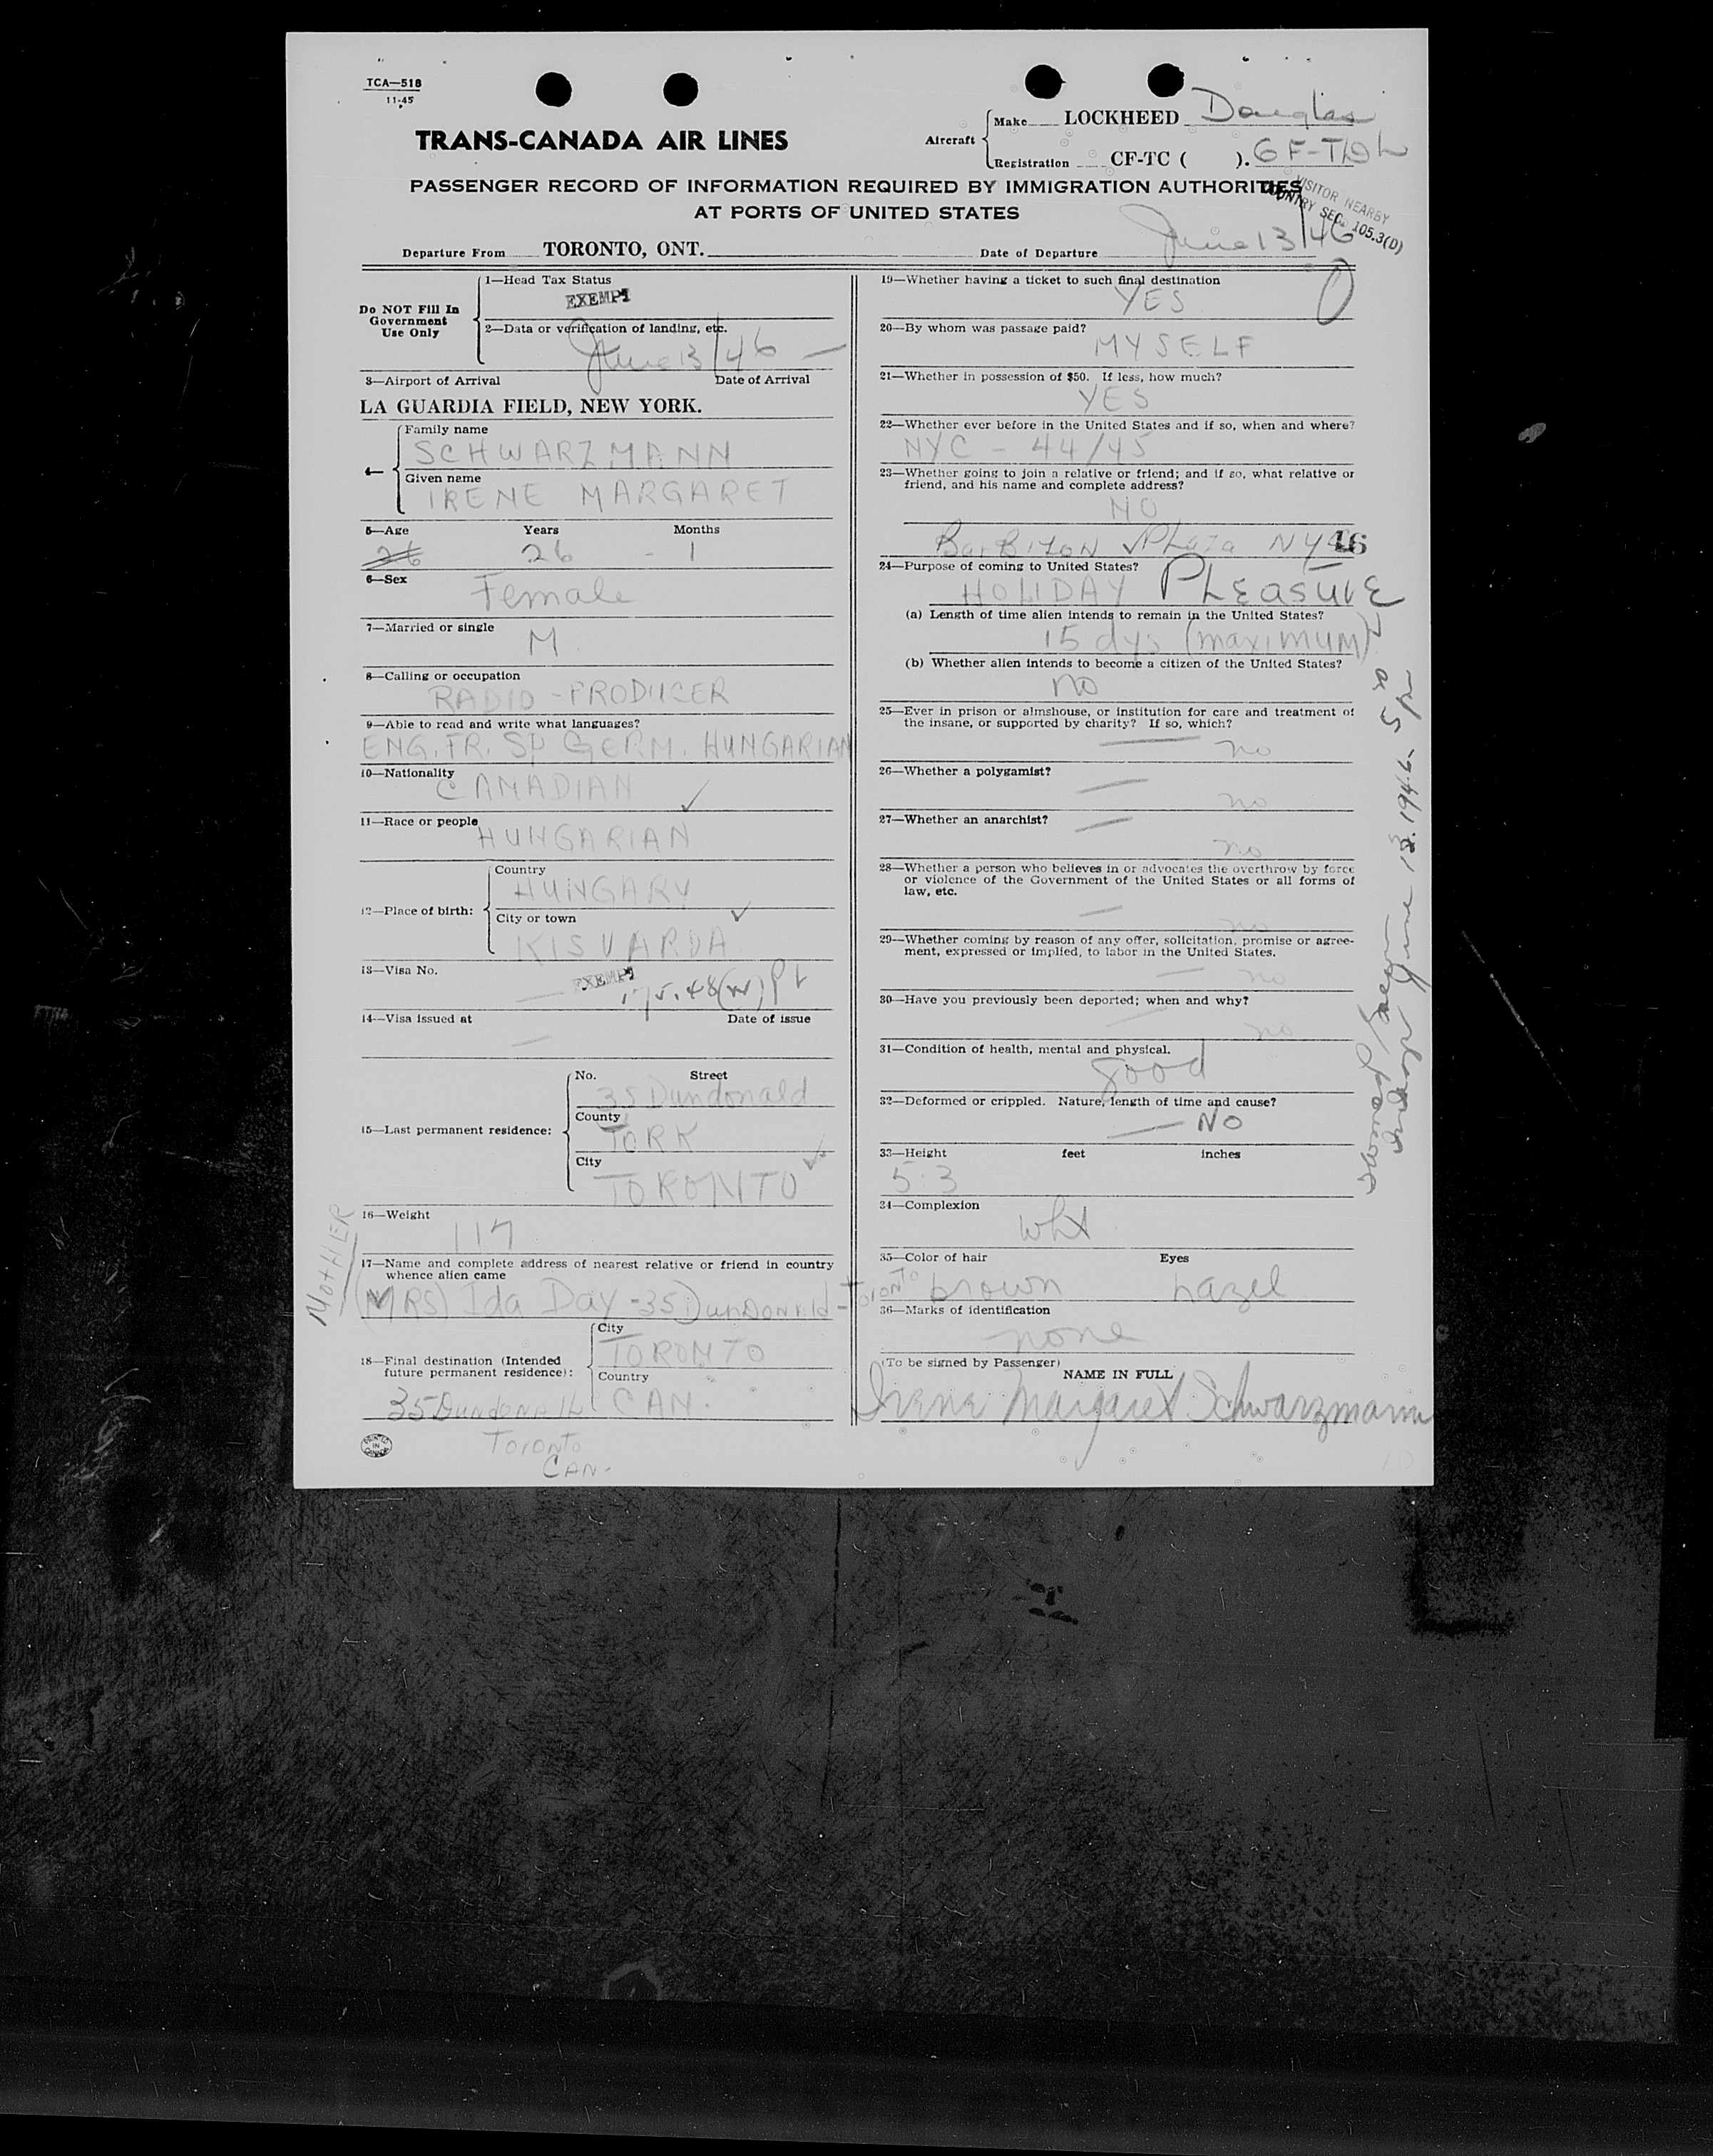 TCA—518
11-45
TRANS-CANADA AIR LINES
Aircraft
Make LOCKHEED Douglas
Registration CF-TC ( ). CF-TDL
PASSENGER RECORD OF INFORMATION REQUIRED BY IMMIGRATION AUTHORITIES
AT PORTS OF UNITED STATES
VISITOR NEARBY
COUNTRY SEC. 105.3(D)
Departure From TORONTO, ONT.
Date of Departure June 13/46
Do NOT Fill In
Government
Use Only
1—Head Tax Status
EXEMPT
2—Data or verification of landing, etc.
June 13/46 —
3—Airport of Arrival Date of Arrival
LA GUARDIA FIELD, NEW YORK.
4—
Family name
SCHWARZMANN
Given name
IRENE MARGARET
5—Age Years Months
26 26 - 1
6—Sex
Female
7—Married or single
M
8—Calling or occupation
RADIO - PRODUCER
9—Able to read and write what languages?
ENG. FR. SP GERM. HUNGARIAN
10—Nationality
CANADIAN ✓
11—Race or people
HUNGARIAN
12—Place of birth:
Country
HUNGARY
City or town ✓
KISVARDA
13—Visa No.
EXEMPT
14—Visa issued at Date of issue
—
15—Last permanent residence:
No. Street
35 Dundonald
County
YORK
City
TORONTO
16—Weight
117
MOTHER
17—Name and complete address of nearest relative or friend in country
whence alien came
(MRS) Ida Day - 35 Dundonald - Toronto
18—Final destination (Intended
future permanent residence):
City
TORONTO
Country
CAN.
35 Dundonald
Toronto
CAN-
PRINTED
IN
CANADA
19—Whether having a ticket to such final destination
YES
20—By whom was passage paid?
MYSELF
21—Whether in possession of $50. If less, how much?
YES
22—Whether ever before in the United States and if so, when and where?
NYC - 44/45
23—Whether going to join a relative or friend; and if so, what relative or
friend, and his name and complete address?
NO
BarBizon Plaza NYC 46
24—Purpose of coming to United States?
HOLIDAY PLEASURE
(a) Length of time alien intends to remain in the United States?
15 dys (maximum)
(b) Whether alien intends to become a citizen of the United States?
no
25—Ever in prison or almshouse, or institution for care and treatment of
the insane, or supported by charity? If so, which?
— no
26—Whether a polygamist?
— no
27—Whether an anarchist?
— no
28—Whether a person who believes in or advocates the overthrow by force
or violence of the Government of the United States or all forms of
law, etc.
— no
29—Whether coming by reason of any offer, solicitation, promise or agree-
ment, expressed or implied, to labor in the United States.
— no
30—Have you previously been deported; when and why?
— no
31—Condition of health, mental and physical.
good
32—Deformed or crippled. Nature, length of time and cause?
— NO
33—Height feet inches
5.3
34—Complexion
wht
35—Color of hair Eyes
brown hazel
36—Marks of identification
none
(To be signed by Passenger)
NAME IN FULL
Irene Margaret Schwarzmann
June 13. 1946